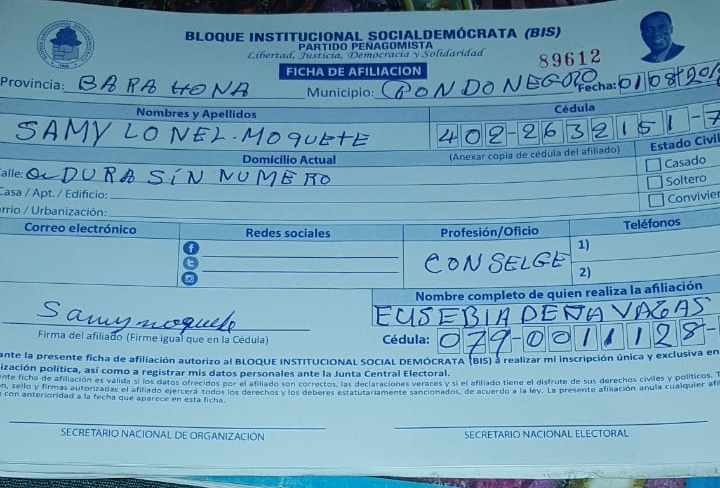 BLOQUE INSTITUCIONAL SOCIALDEMÓCRATA (BIS)
PARTIDO PEÑAGOMISTA
Libertad, Justicia, Democracia y Solidaridad
89612
FICHA DE AFILIACION
Provincia: BARAHONA Municipio: CONDO NEGRO Fecha: 01/08/201
Nombres y Apellidos Cédula
SAMY LONEL. MOQUETE 402-2632151-7
Domicilio Actual (Anexar copia de cédula del afiliado) Estado Civil
alle: DURA SIN NUMERO Casado
Casa / Apt. / Edificio: Soltero
rrio / Urbanización: Convivien
Correo electrónico Redes sociales Profesión/Oficio Teléfonos
CONSELGE 1)
2)
Nombre completo de quien realiza la afiliación
Samy moquete EUSEBIA PEÑA VAGAS
Firma del afiliado (Firme igual que en la Cédula) Cédula: 079-0011128-
ante la presente ficha de afiliación autorizo al BLOQUE INSTITUCIONAL SOCIAL DEMÓCRATA (BIS) a realizar mi inscripción única y exclusiva en
ización política, así como a registrar mis datos personales ante la Junta Central Electoral.
nte ficha de afiliación es valida si los datos ofrecidos por el afiliado son correctos, las declaraciones veraces y si el afiliado tiene el disfrute de sus derechos civiles y políticos. T
n, sello y firmas autorizadas el afiliado ejercerá todos los derechos y los deberes estatutariamente sancionados, de acuerdo a la ley. La presente afiliación anula cualquier afil
con anterioridad a la fecha que aparece en esta ficha.
SECRETARIO NACIONAL DE ORGANIZACIÓN SECRETARIO NACIONAL ELECTORAL